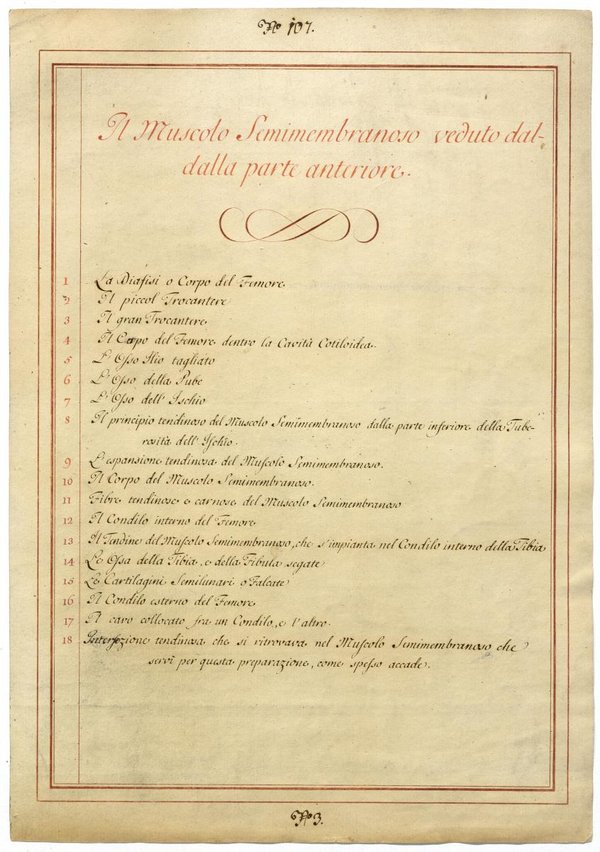 No 107.
Il Muscolo Semimembranoso veduto dal-
dalla parte anteriore.
1 La Diafisi o Corpo del Femore
2 Il piccol Trocantere
3 Il gran Trocantere
4 Il Capo del Femore dentro la Cavità Cotiloidea
5 L'Osso Ilio tagliato
6 L'Osso della Pube
7 L'Osso dell'Ischio
8 Il principio tendinoso del Muscolo Semimembranoso dalla parte inferiore della Tube-
rosità dell'Ischio.
9 L'espansione tendinosa del Muscolo Semimembranoso.
10 Il Corpo del Muscolo Semimembranoso.
11 Fibre tendinose e carnose del Muscolo Semimembranoso
12 Il Condilo interno del Femore
13 Il Tendine del Muscolo Semimembranoso, che s'impianta nel Condilo interno della Tibia
14 Le Ossa della Tibia, e della Fibula segate
15 Le Cartilagini Semilunari o Falcate
16 Il Condilo esterno del Femore
17 Il cavo collocato fra un Condilo, e l'altro.
18 Intersezione tendinosa che si ritrovava nel Muscolo Semimembranoso che
servì per questa preparazione, come spesso accade.
No 3.